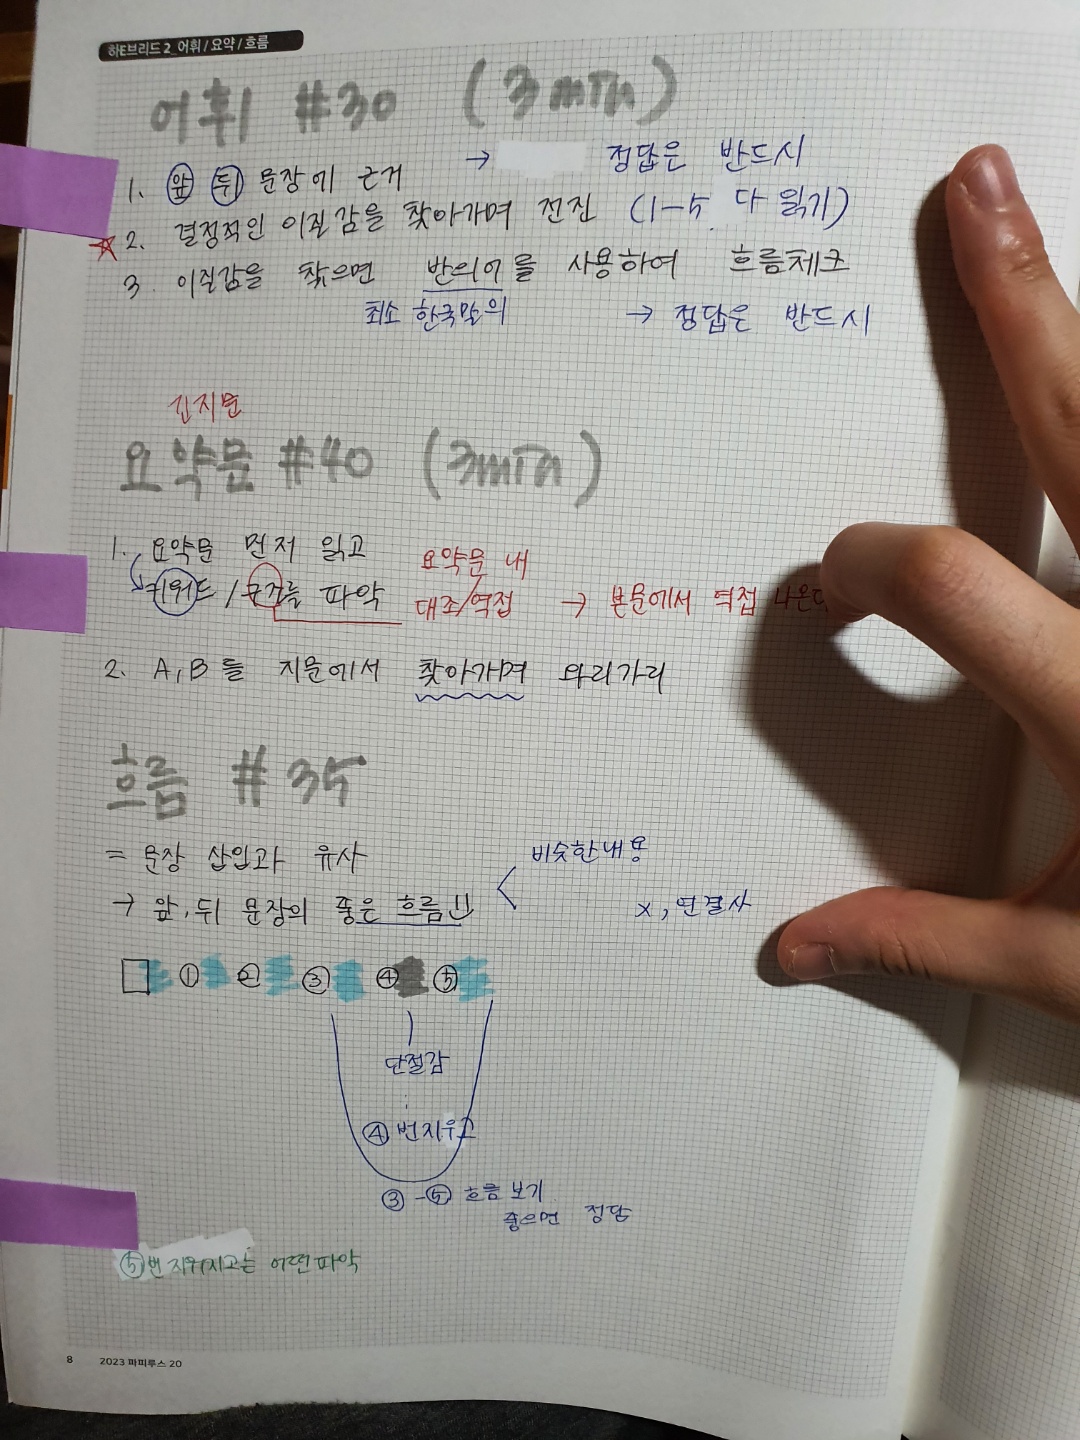 하E브리드 2_어휘 / 요약 / 흐름
어휘 #30 (3min)
→ 정답은 반드시
1. 앞 뒤 문장에 근거
☆2. 결정적인 이질감을 찾아가며 전진 (1-5 다 읽기)
3. 이질감을 찾으면 반의어를 사용하여 흐름체크
최소 한국말의 → 정답은 반드시
긴지문
요약문 #40 (3min)
1. 요약문 먼저 읽고
키워드 / 구조를 파악
요약문 내
대조/역접 → 본문에서 역접
2. A, B를 지문에서 찾아가며 와리가리
흐름 #35
= 문장 삽입과 유사
→ 앞, 뒤 문장의 좋은 흐름
비슷한내용
x, 연결사
□ ① ② ③ ④ ⑤
단절감
④ 번지우고
③-⑤ 흐름 보기
좋으면 정답
⑤번 파악
8 2023 파피루스 20